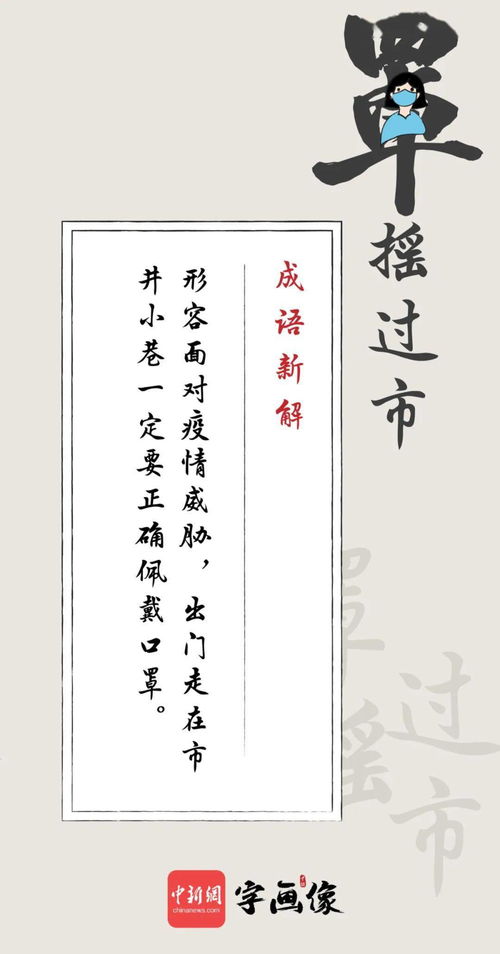 罩摇过市
成语新解
形容面对疫情威胁，出门走在市
井小巷一定要正确佩戴口罩。
罩摇
过市
中新網
chinanews.com
字画像